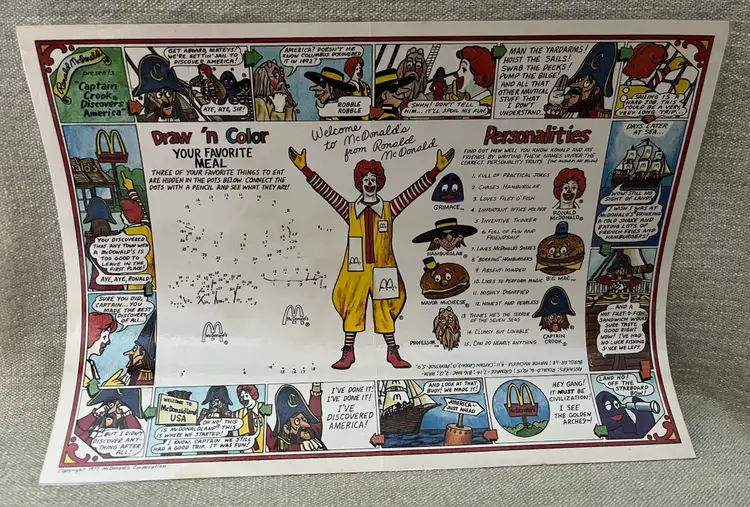 Ronald McDonald
presents
"Captain
Crook
Discovers
America"
GET ABOARD, MATEYS!
WE'RE SETTIN' SAIL TO
DISCOVER AMERICA!
AYE, AYE, SIR!
AMERICA? DOESN'T HE
KNOW COLUMBUS DISCOVERED
IT IN 1492?
ROBBLE
ROBBLE
SHHH! DON'T TELL
HIM... IT'LL SPOIL HIS FUN.
MAN THE YARDARMS!
HOIST THE SAILS!
SWAB THE DECKS!
PUMP THE BILGE!
AND ALL THAT
OTHER NAUTICAL
STUFF THAT
I DON'T
UNDERSTAND...
SAILING IS A
HARD JOB. THIS
COULD BE A VERY,
VERY LONG TRIP...
DAYS LATER
AT SEA...
WOW! STILL NO
SIGHT OF LAND!
I WISH I WAS AT
McDONALD'S DRINKING
A COLD SHAKE AND
EATING LOTS OF
FRENCH FRIES AND
HAMBURGERS!
AND A
HOT FILET-O-FISH
SANDWICH WOULD
SURE TASTE
GOOD RIGHT
NOW! I'VE HAD
NO LUCK FISHING
SINCE WE LEFT.
LAND HO!
OFF THE
STARBOARD
BOW!
HEY GANG!
IT MUST BE
CIVILIZATION!
I SEE
THE GOLDEN
ARCHES~!
McDonald's
AND LOOK AT THAT
BUOY! WE MADE IT!
AMERICA-
JUST AHEAD
I'VE DONE IT!
I'VE DONE IT!
I'VE
DISCOVERED
AMERICA!
WELCOME TO
McDonaldland
USA
OH NO! THIS
IS McDONALDLAND! THIS
IS WHERE WE STARTED!
I KNOW CAPTAIN. WE STILL
HAD A GOOD TRIP. IT WAS FUN!
BUT I DIDN'T
DISCOVER ANY-
THING AFTER
ALL!
SURE YOU DID,
CAPTAIN... YOU
MADE THE BEST
DISCOVERY
OF ALL.
YOU DISCOVERED
THAT ANY TOWN W/
A McDONALD'S IS
TOO GOOD TO
LEAVE IN THE
FIRST PLACE!
AYE, AYE, RONALD!
McDonald's
Draw 'n Color
YOUR FAVORITE
MEAL
THREE OF YOUR FAVORITE THINGS TO EAT
ARE HIDDEN IN THE DOTS BELOW. CONNECT THE
DOTS WITH A PENCIL AND SEE WHAT THEY ARE!
Welcome
to McDonald's
from Ronald
McDonald
Personalities
FIND OUT HOW WELL YOU KNOW RONALD AND HIS
FRIENDS BY WRITING THEIR NAMES UNDER THE
CORRECT PERSONALITY TRAITS
1. FULL OF PRACTICAL JOKES
2. CHASES HAMBURGLAR
3. LOVES FILET O' FISH
4. IMPORTANT OFFICE HOLDER
5. INVENTIVE THINKER
6. FULL OF FUN AND
FRIENDSHIP
7. LOVES McDONALD'S SHAKES
8. "BORROWS" HAMBURGERS
9. ABSENT-MINDED
10. LIKES TO PERFORM MAGIC
11. HIGHLY DIGNIFIED
12. HONEST AND FEARLESS
13. THINKS HE'S THE TERROR
OF THE SEVEN SEAS
14. CLUMSY BUT LOVABLE
15. CAN DO NEARLY ANYTHING
GRIMACE
HAMBURGLAR
MAYOR McCHEESE
PROFESSOR
RONALD
McDONALD
BIG MAC
CAPTAIN
CROOK
Copyright 1977 McDonald's Corporation